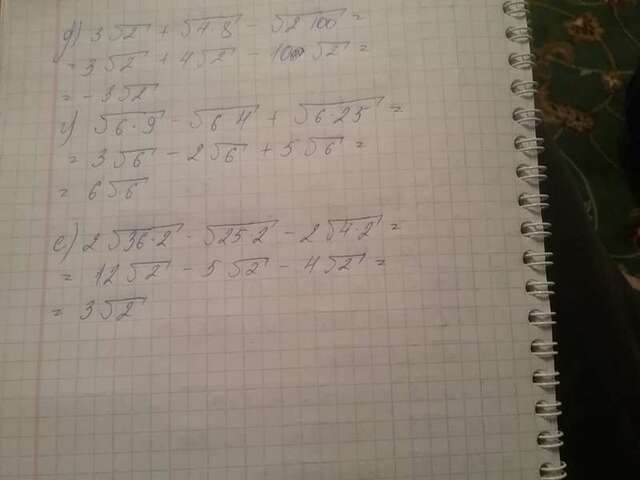 д) 3√2 + √4·8 − √2·100 =
= 3√2 + 4√2 − 10√2 =
= −3√2
г) √6·9 − √6·4 + √6·25 =
= 3√6 − 2√6 + 5√6 =
= 6√6
е) 2√36·2 - √25·2 − 2√4·2 =
= 12√2 − 5√2 − 4√2 =
= 3√2